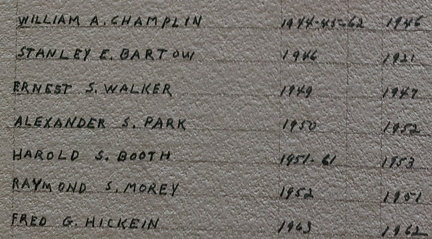 WILLIAM A. CHAMPLIN 1944-45-62 1946
STANLEY E. BARTOW 1946 1921
ERNEST S. WALKER 1949 1947
ALEXANDER S. PARK 1950 1952
HAROLD S. BOOTH 1951-61 1953
RAYMOND S. MOREY 1952 1951
FRED G. HICKEIN 1963 1962